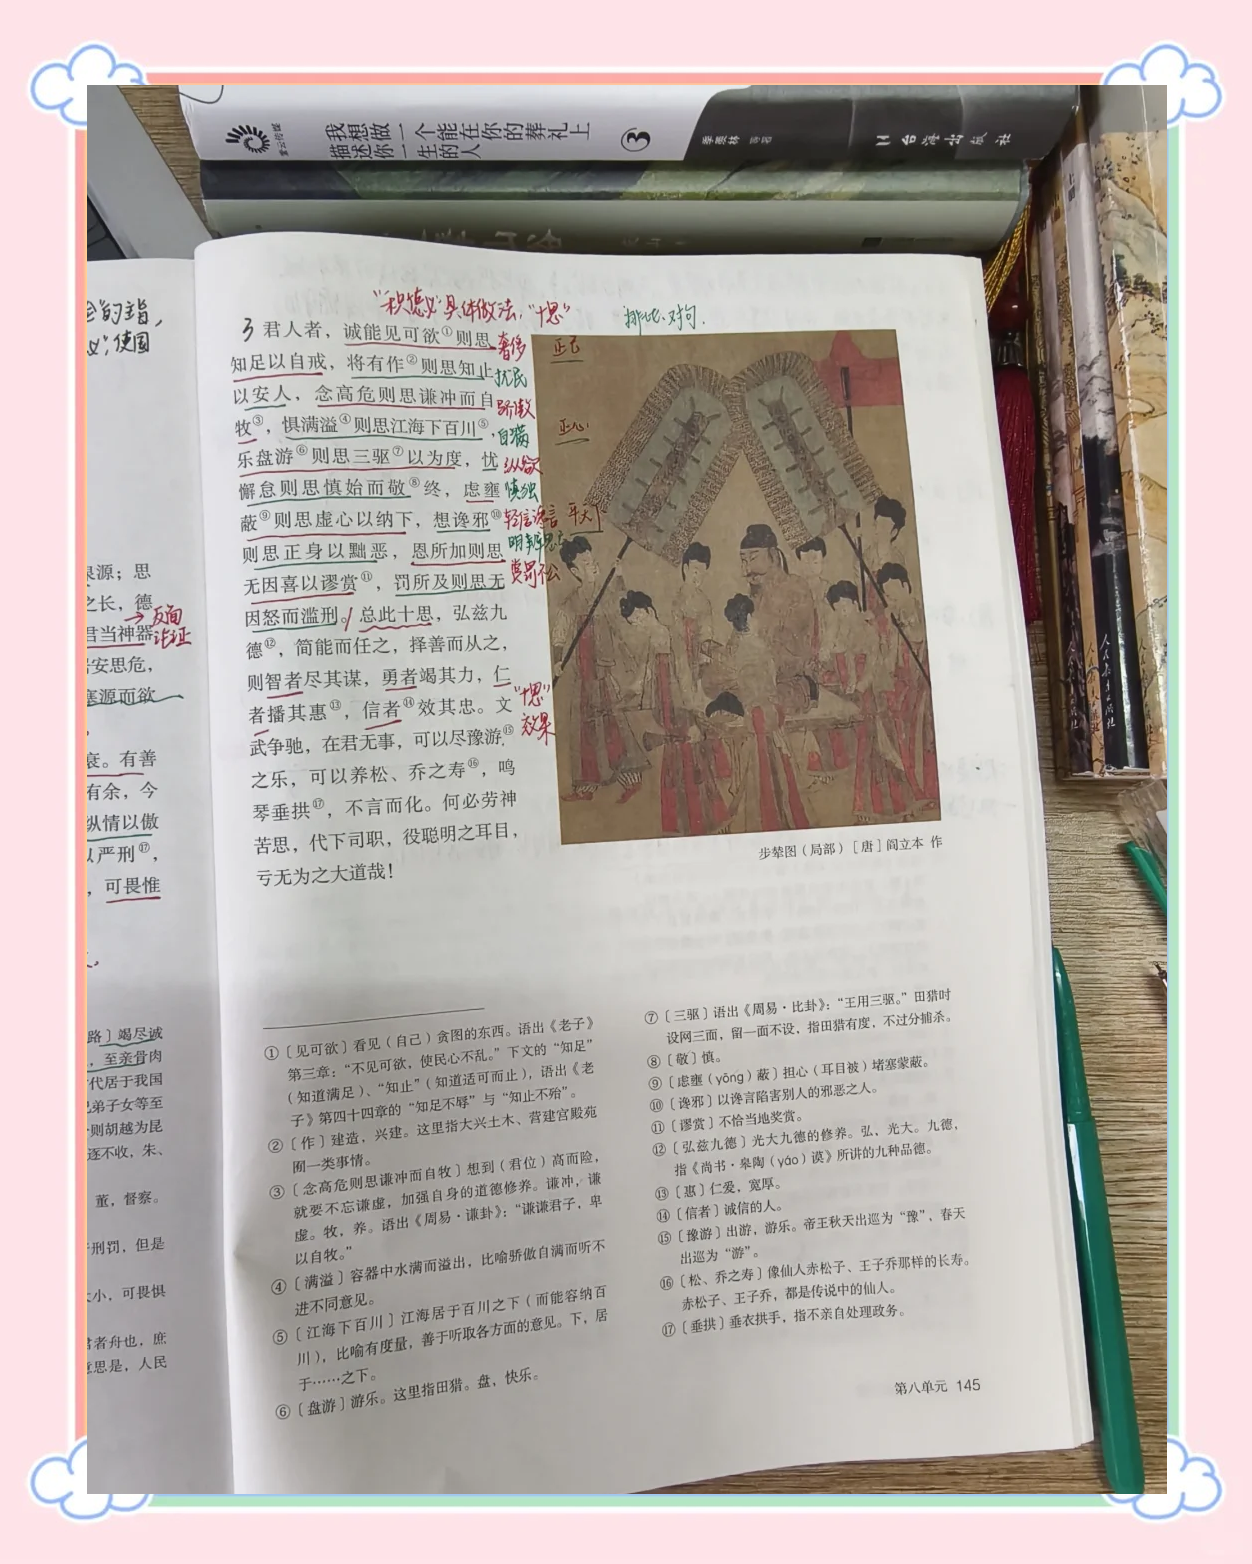 我想做一个能在你的葬礼上
描述你一生的人
③
季羡林 等著
台海出版社
人民文学出版社
的主旨,
使国
泉源；思
之长，德
→反面
论证
君当神器
居安思危，
塞源而欲
衰。有善
有余，今
纵情以傲
以严刑⑰，
，可畏惟
路〕竭尽诚
，至亲骨肉
代居于我国
兄弟子女等至
则胡越为昆
逐不收，朱、
董，督察。
刑罚，但是
大小，可畏惧
君者舟也，庶
意思是，人民
“积德义”具体做法：“十思”
排比、对句.
3 君人者，诚能见可欲①则思 奢侈
知足以自戒，将有作②则思知止 扰民
以安人，念高危则思谦冲而自 骄傲
牧③，惧满溢④则思江海下百川⑤， 自满
乐盘游⑥则思三驱⑦以为度，忧 纵欲
懈怠则思慎始而敬⑧终，虑壅 慎独
蔽⑨则思虚心以纳下，想谗邪⑩ 轻信谗言
则思正身以黜恶，恩所加则思
无因喜以谬赏⑪，罚所及则思无 赏罚不公
因怒而滥刑。/总此十思，弘兹九
德⑫，简能而任之，择善而从之，
则智者尽其谋，勇者竭其力，仁
者播其惠⑬，信者⑭效其忠。文
“十思”
效果
武争驰，在君无事，可以尽豫游⑮
之乐，可以养松、乔之寿⑯，鸣
琴垂拱⑰，不言而化。何必劳神
苦思，代下司职，役聪明之耳目，
亏无为之大道哉！
正己
正心
步辇图（局部）［唐］阎立本 作
①〔见可欲〕看见（自己）贪图的东西。语出《老子》
第三章：“不见可欲，使民心不乱。”下文的“知足”
（知道满足）、“知止”（知道适可而止），语出《老
子》第四十四章的“知足不辱”与“知止不殆”。
②〔作〕建造，兴建。这里指大兴土木、营建宫殿苑
囿一类事情。
③〔念高危则思谦冲而自牧〕想到（君位）高而险，
就要不忘谦虚，加强自身的道德修养。谦冲，谦
虚。牧，养。语出《周易·谦卦》：“谦谦君子，卑
以自牧。”
④〔满溢〕容器中水满而溢出，比喻骄傲自满而听不
进不同意见。
⑤〔江海下百川〕江海居于百川之下（而能容纳百
川），比喻有度量，善于听取各方面的意见。下，居
于……之下。
⑥〔盘游〕游乐。这里指田猎。盘，快乐。
⑦〔三驱〕语出《周易·比卦》：“王用三驱。”田猎时
设网三面，留一面不设，指田猎有度，不过分捕杀。
⑧〔敬〕慎。
⑨〔虑壅（yōng）蔽〕担心（耳目被）堵塞蒙蔽。
⑩〔谗邪〕以谗言陷害别人的邪恶之人。
⑪〔谬赏〕不恰当地奖赏。
⑫〔弘兹九德〕光大九德的修养。弘、光大。九德，
指《尚书·皋陶（yáo）谟》所讲的九种品德。
⑬〔惠〕仁爱，宽厚。
⑭〔信者〕诚信的人。
⑮〔豫游〕出游，游乐。帝王秋天出巡为“豫”，春天
出巡为“游”。
⑯〔松、乔之寿〕像仙人赤松子、王子乔那样的长寿。
赤松子、王子乔，都是传说中的仙人。
⑰〔垂拱〕垂衣拱手，指不亲自处理政务。
第八单元 145